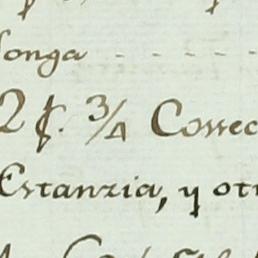 longa - - - -
2 ꝑ. 3/4 Correc
Estanzia, y otr